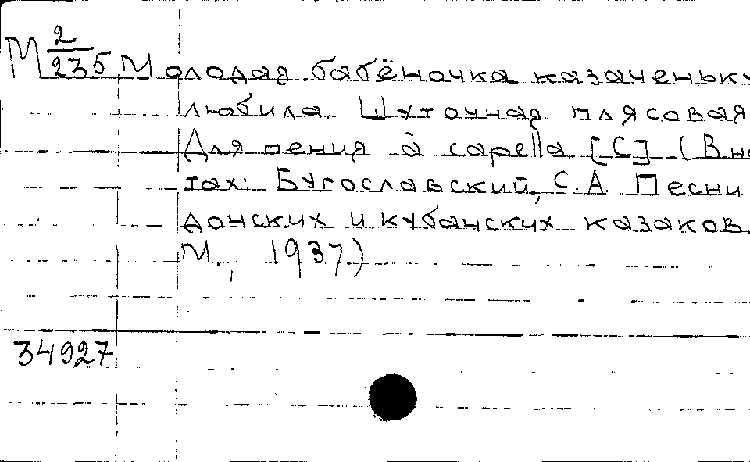 М 2/235 Молодая бабёночка казаченьку
любила. Шуточная плясовая
Для пения à capella [С] (В но
тах: Бугославский, С.А. Песни
донских и кубанских казаков.
М., 1937)
34927